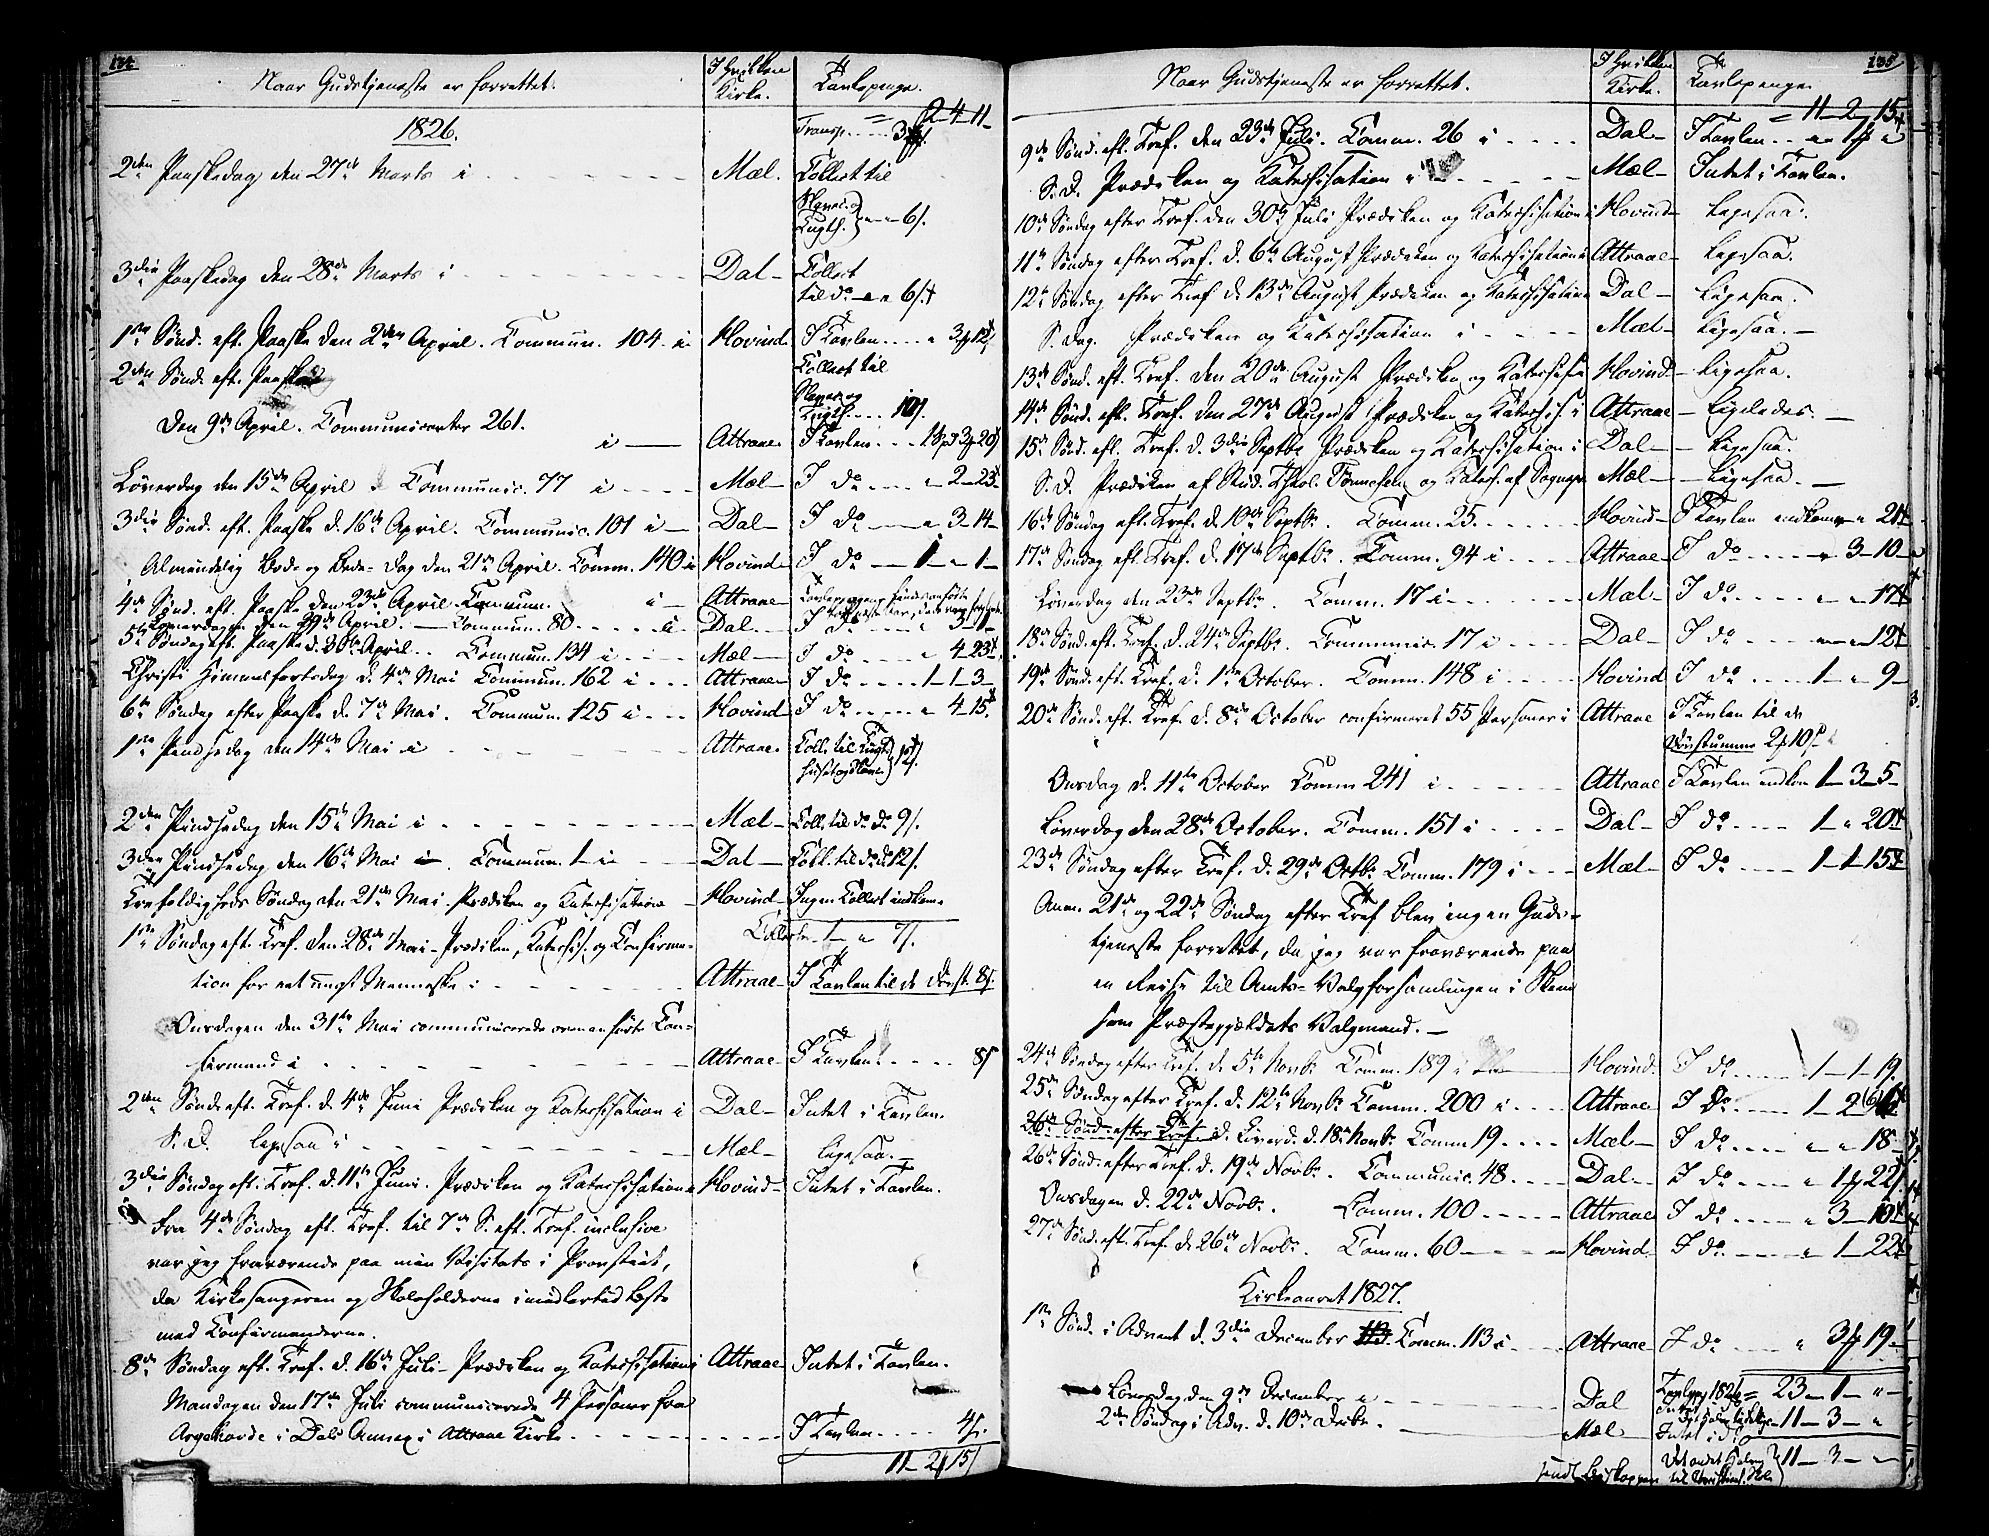 174
Naar Gudstjeneste er forrettet.
I hvilken Kirke.
Tavlepenge.
1826.
Transp. 2-4-11-
2den Paaskedag den 27de Marts i Mæl. Collect til
Slaver og Tugth. 6 s.
3die Paaskedag den 28de Marts i Dal - Collect
til do 6 s.
1ste Sønd. eft. Paaske den 2den April. Commun. 104. i Hovind. I Tavlen 3 12
2den Sønd. eft. Paaske Collect til
Slaver og Tugth. 10 s.
den 9de April. Communicanter 261. i Attraae. I Tavlen 1 3 20
Løverdag den 15de April Communic. 77 i Mæl - I do 2-23
3die Sønd. eft. Paaske d. 16de April. Communic. 101 i Dal - I do 3-14-
Almindelig Bede- og Bods-Dag den 21de April. Comm. 140 i Hovind - I do 1 " 1-
4de Sønd. eft. Paaske den 23de April Commun. i Attraae
Løverdagen den 29de April. Commun. 80 i Dal - I do 3-1-
5te Søndag eft. Paaske d. 30te April. Commun. 134 i Mæl - I do 4-23
Christi Himmelfartsdag d. 4de Mai Commun. 162 i Attraae - I do 1-1-3-
6te Søndag efter Paaske d. 7de Mai. Commun. 125 i Hovind I do 4-15
1ste Pindsedag den 14de Mai i Attraae. Coll. til Tugt- 12 s.
2den Pindsedag den 15de Mai i Mæl - Coll. til do do 9 s.
3die Pindsedag den 16de Mai Commun. 1 i Dal - Coll. til do do 12 s.
Trefoldigheds Søndag den 21de Mai. Prædiken og Katechisation Hovind - Ingen Collect indkom.
1ste Søndag eft. Tref. den 28de Mai - Prædiken, Katechis. og Confirma-
tion for eet ungt Menneske i Attraae - I Tavlen til de Døvst. 8 s.
Onsdagen den 31te Mai communicerede ovenanførte Con-
firmand i Attraae I Tavlen. 8 s
2den Sønd. eft. Tref. d. 4de Juni Prædiken og Katechisation i Dal - Intet i Tavlen.
S. D. Ligesaa i Mæl - Ligesaa. -
3die Søndag eft. Tref. d. 11te Juni. Prædiken og Katechisation Hovind - Intet i Tavlen.
Fra 4de Søndag eft. Tref. til 7de S. eft. Tref. inclusive
var jeg fraværende paa min Visitats i Provstiet,
da Kirkesangeren og Skoleholderne imidlertid læste
med Confirmanderne.
8de Søndag eft. Tref. d. 16de Juli - Prædiken og Katechisation i Attraae - Intet i Tavlen.
Mandagen den 17de Juli communicerede 4 Personer fra
i Dals Annex i Attraae Kirke I Tavlen 4 s.
11-2-15
175
Naar Gudstjeneste er forrettet.
I hvilken Kirke.
Tavlepenge.
11-2-15
9de Sønd. eft. Tref. den 23de Juli. Comm. 26 i Dal - I Tavlen
S. D. Prædiken og Katechisation i Mæl - Intet i Tavlen.
10de Søndag efter Tref. den 30te Juli Prædiken og Katechisation i Hovind - Ligesaa.
11te Søndag efter Tref. d. 6te August Prædiken og Katechisation i Attraae - Ligesaa.
12te Søndag efter Tref d. 13de August Prædiken og Katechisation Dal - Ligesaa.
S. Dag. Prædiken og Katechisation i Mæl - Ligesaa. -
13de Sønd. eft. Tref. den 20de August Prædiken og Katechisa Hovind - Ligesaa.
14de Sønd. eft. Tref. den 27de August Prædiken og Katechis. i Attraae - Ligeledes. -
15de Sønd. eft. Tref. d. 3die Septbr Prædiken og Katechisation i Dal - Ligesaa.
S. D. Prædiken af Stud. Theol. Tønnesen og Katech. af Sognepr Mæl - Ligesaa. -
16de Søndag eft. Tref. d. 10de Septbr. Comm. 25. Hovind - I Tavlen indkom 21
17de Søndag eft. Tref. d. 17de Septbr. Comm. 94 i Attraae - I do 3-10-
Løverdag den 23de Septbr. Comm. 17 i Mæl - I do 17
18de Sønd. eft. Tref. d. 24de Septbr. Communic. 17 i Dal - I do 12
19de Sønd. eft. Tref. d. 1ste October. Comm. 148 i Hovind I do 1 " 9-
20de Sønd. eft. Tref. d. 8de October confirmeret 55 Personer i Attraae I Tavlen til de
Døvstumme 2 10 s
Onsdag d. 11te October Comm 241 i Attraae I Tavlen indkom 1-3-5-
Løverdag den 28de October. Comm. 151 i Dal - I do 1 " 20
23de Søndag efter Tref. d. 29de Octbr. Comm. 179 i Mæl - I do 1-1-15
Anm. 21de og 22de Søndag efter Tref blev ingen Guds-
tjeneste forrettet, da jeg var fraværende paa
en Reise til Amts-Valgforsamlingen i Skien
som Præstegjeldets Valgmand. -
24de Søndag efter Tref. d. 5te Novbr. Comm. 189 i Hovind. I do 1-1-19
25de Søndag efter Tref. d. 12te Novbr. Comm. 200 i Attraae I do 1-2
26de Sønd. efter Tref. Løverd. d. 18de Novbr. Comm 19. Mæl - I do 18
26de Sønd. efter Tref. d. 19de Novbr. Communic. 48. Dal - I do 1 22
Onsdagen d. 22de Novbr. Comm. 100 Attraae I do 3-10
27de Sønd. eft. Tref. d. 26de Novbr. Comm. 60 Hovind - I do 1-22
Kirkeaaret 1827.
1ste Sønd. i Advent d. 3die December 113 Comm. 113 i Attraae I do 3 19-
Løverdag den 9de December i Dal 23-1-"-
11-3-"
2den Søndag i Adv. d. 10de Decbr. Mæl Intet i do
11-3-"-